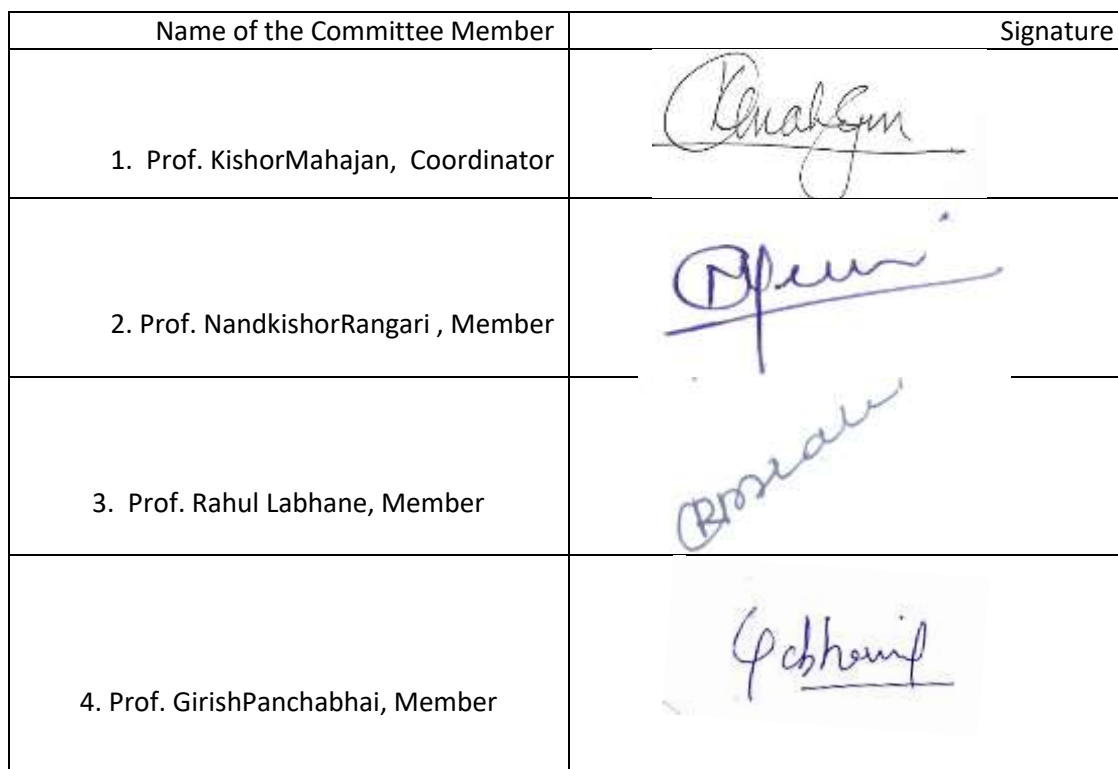 Name of the Committee Member Signature
1. Prof. KishorMahajan, Coordinator
2. Prof. NandkishorRangari , Member
3. Prof. Rahul Labhane, Member
4. Prof. GirishPanchabhai, Member